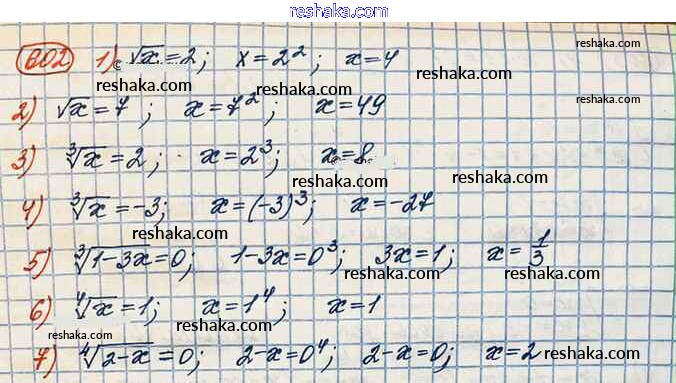 reshaka.com
602 1) √x = 2; x = 2²; x = 4
reshaka.com
reshaka.com
reshaka.com
2) √x = 7; x = 7²; x = 49
reshaka.com
reshaka.com
3) ∛x = 2; x = 2³; x = 8
reshaka.com
reshaka.com
4) ∛x = -3; x = (-3)³; x = -27
reshaka.com
reshaka.com
5) ∛(1-3x) = 0; 1-3x = 0³; 3x = 1; x = 1/3
reshaka.com
reshaka.com
6) ∜x = 1; x = 1⁴; x = 1
reshaka.com
reshaka.com
7) ∜(2-x) = 0; 2-x = 0⁴; 2-x = 0; x = 2
reshaka.com
reshaka.com